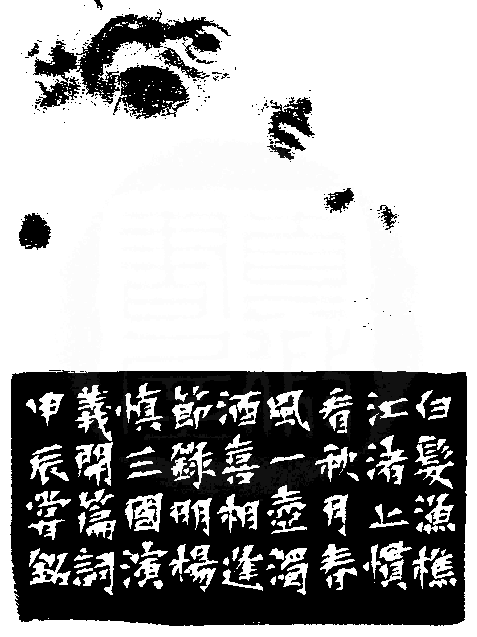 白髮漁樵
江渚上慣
看秋月春
風一壺濁
酒喜相逢
節錄明楊
慎三國演
義開篇詞
甲辰銘